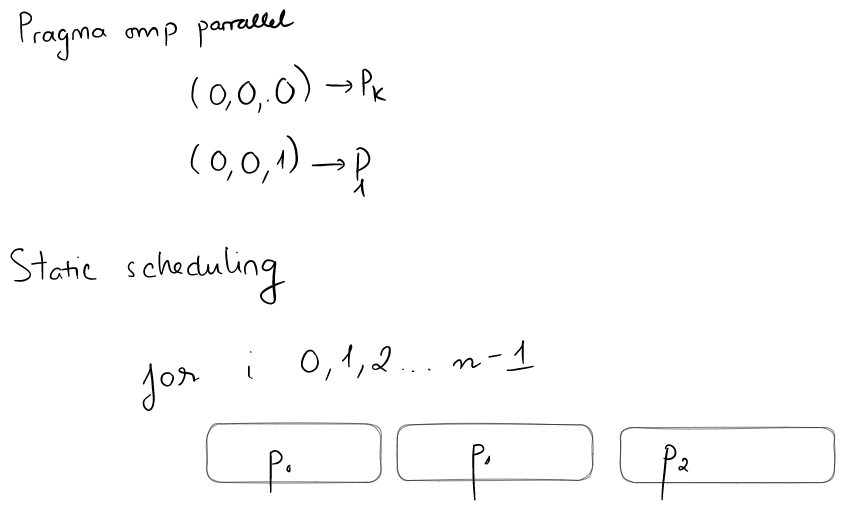 Pragma omp parrallel
(0,0,0) → Pk
(0,0,1) → P1
Static scheduling
for i 0,1,2... n-1
P0 P1 P2